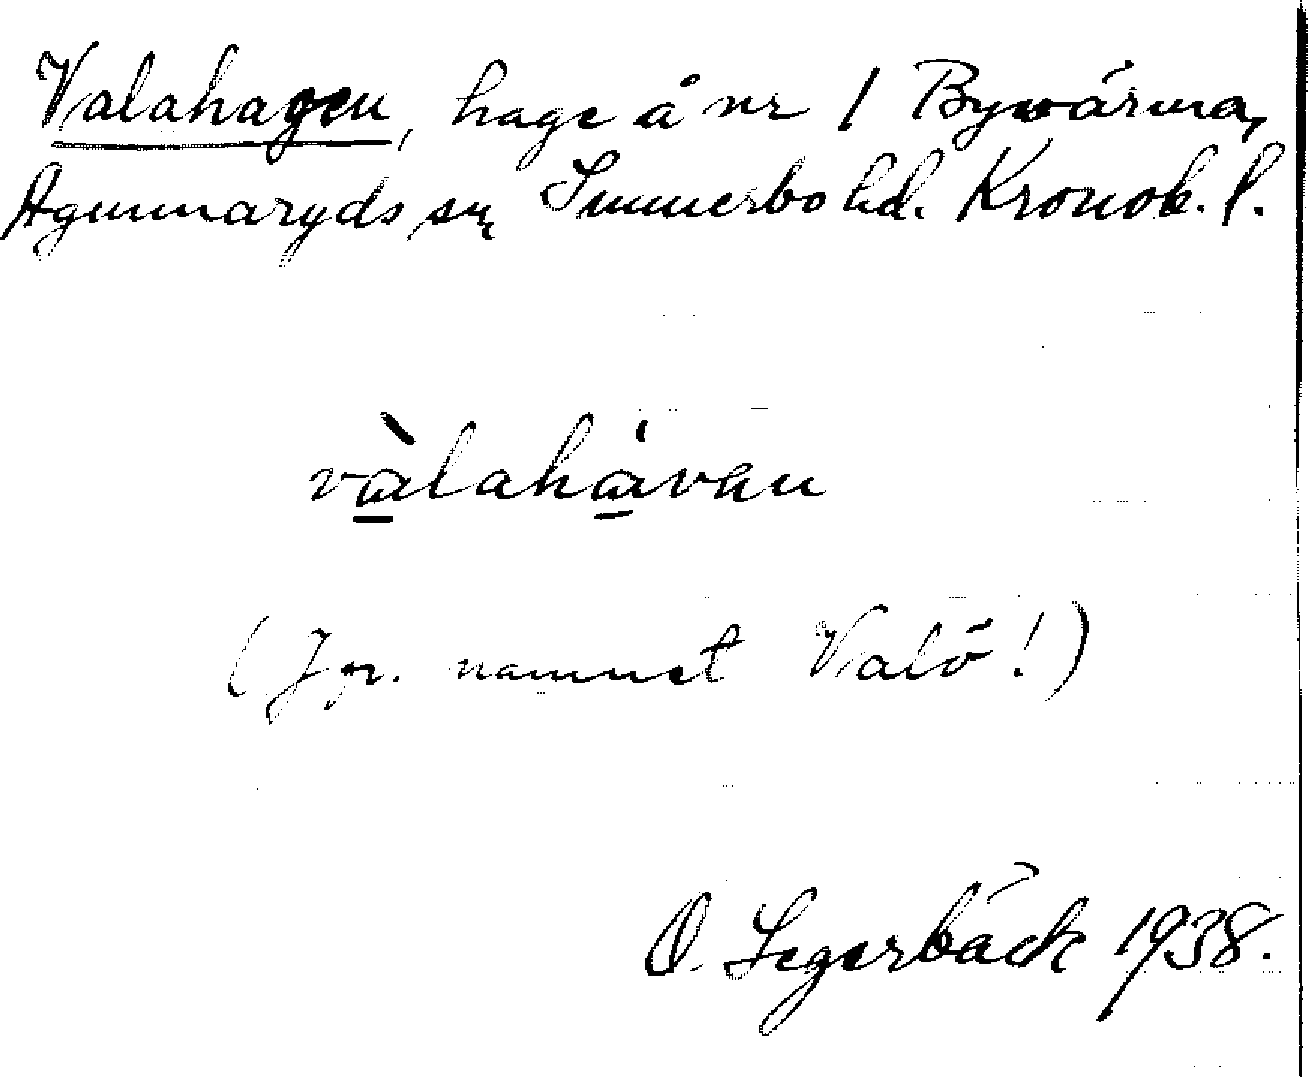 Valahagen, hage å nr 1 Byvärma,
Agunnaryds sn, Sunnerbo hd. Kronob. l.
vàlahávan
(Jfr. namnet Valö!)
O. Segerbäck 1938.